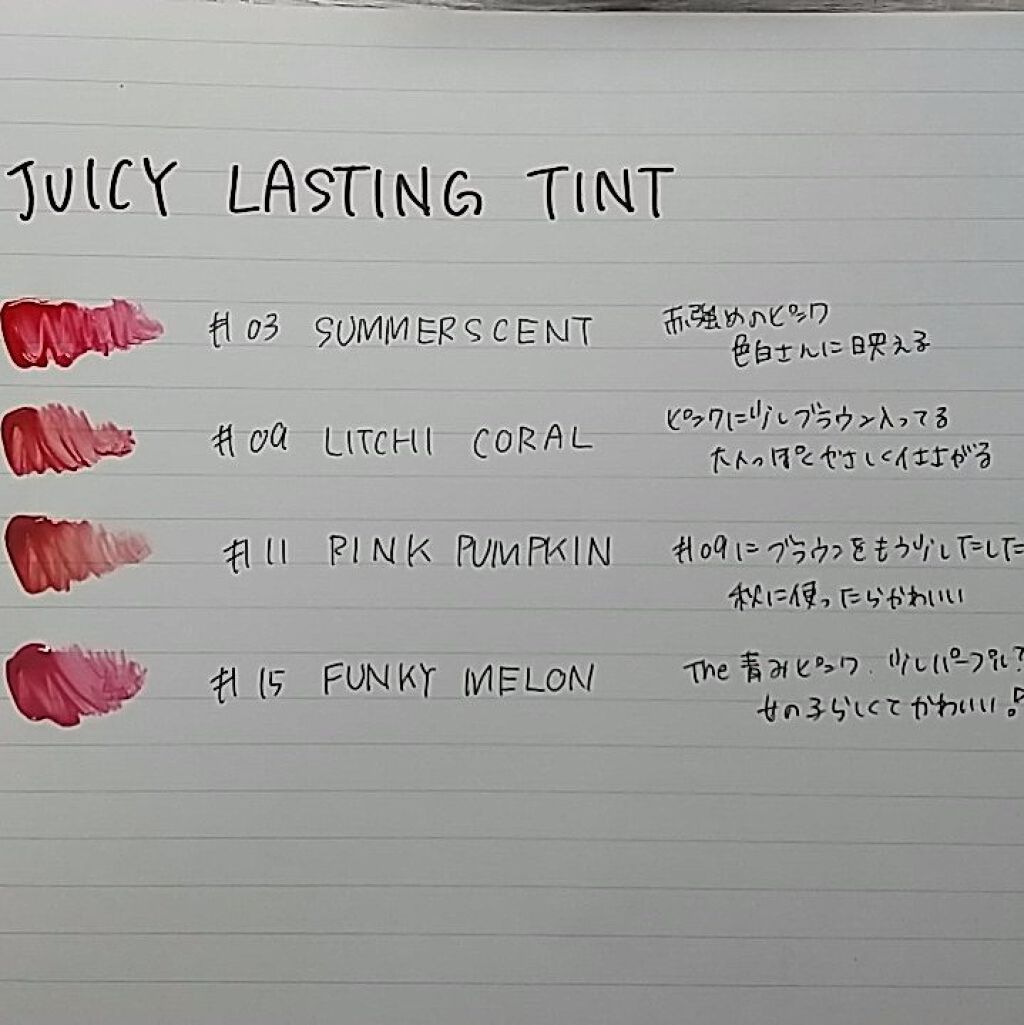 JUICY LASTING TINT
#03 SUMMERSCENT
赤強めのピンク
色白さんに映える
#09 LITCHI CORAL
ピンクに少しブラウン入ってる
大人っぽくやさしく仕上がる
#11 PINK PUMPKIN
#09にブラウンをもう少し足した
秋に使ったらかわいい
#15 FUNKY MELON
The 青みピンク、少しパープル?
女の子らしくてかわいい